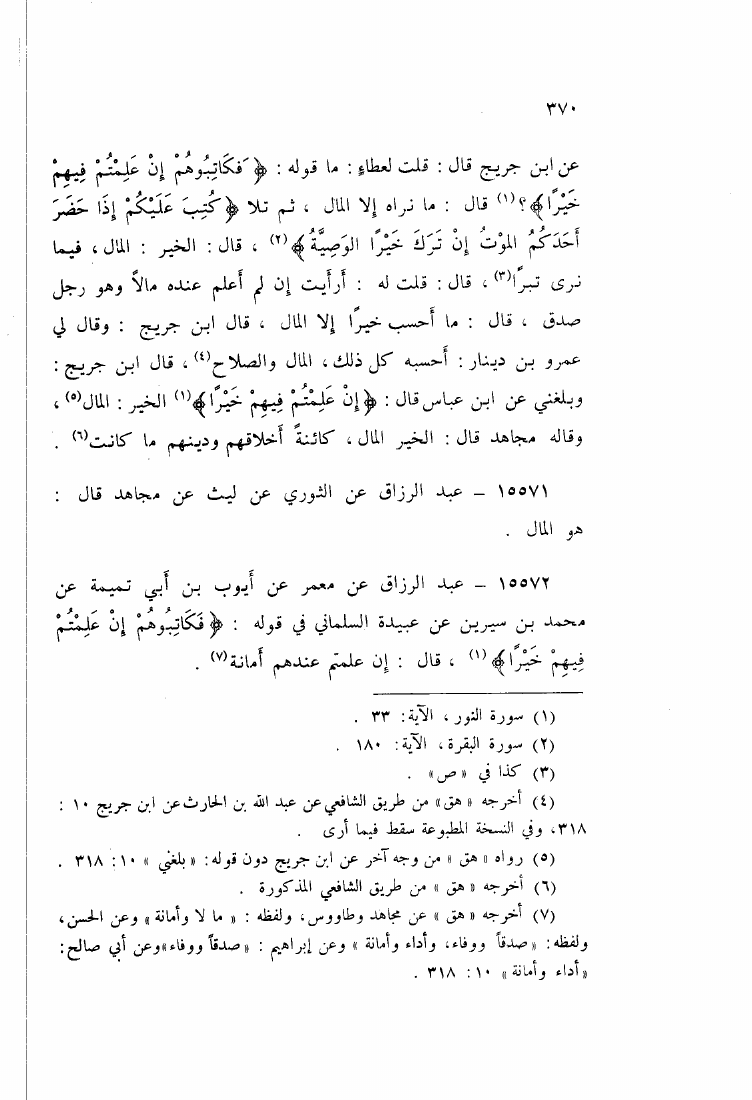 ٣٧٠
عن ابن جريج قال : قلت لعطاءٍ : ما قوله : ﴿ فَكَاتِبُوهُمْ إِنْ عَلِمْتُمْ فِيهِمْ
خَيْرًا﴾؟(١) قال : ما نراه إلا المال ، ثم تلا ﴿كُتِبَ عَلَيْكُمْ إِذَا حَضَرَ
أَحَدَكُمُ المَوْتُ إِنْ تَرَكَ خَيْرًا الوَصِيَّةُ﴾(٢) ، قال : الخير : المال ، فيما
نرى تبرًا(٣) ، قال : قلت له : أرأيت إن لم أعلم عنده مالاً وهو رجل
صدق ، قال : ما أحسب خيرًا إلا المال ، قال ابن جريج : وقال لي
عمرو بن دينار : أحسبه كل ذلك ، المال والصلاح(٤) ، قال ابن جريج :
وبلغني عن ابن عباس قال : ﴿إِنْ عَلِمْتُمْ فِيهِمْ خَيْرًا﴾(١) الخير : المال(٥) ،
وقاله مجاهد قال : الخير المال ، كائنةً أخلاقهم ودينهم ما كانت(٦) .
١٥٥٧١ – عبد الرزاق عن الثوري عن ليث عن مجاهد قال :
هو المال .
١٥٥٧٢ – عبد الرزاق عن معمر عن أيوب بن أبي تميمة عن
محمد بن سيرين عن عبيدة السلماني في قوله : ﴿ فَكَاتِبُوهُمْ إِنْ عَلِمْتُمْ
فِيهِمْ خَيْرًا﴾ (١) ، قال : إن علمتم عندهم أمانة(٧) .
(١) سورة النور ، الآية : ٣٣ .
(٢) سورة البقرة ، الآية : ١٨٠ .
(٣) كذا في « ص» .
(٤) أخرجه « هق» من طريق الشافعي عن عبد الله بن الحارث عن ابن جريج ١٠ :
٣١٨، وفي النسخة المطبوعة سقط فيما أرى .
(٥) رواه « هق » من وجه آخر عن ابن جريج دون قوله : « بلغني » ١٠ : ٣١٨ .
(٦) أخرجه « هق » من طريق الشافعي المذكورة .
(٧) أخرجه « هق » عن مجاهد وطاووس، ولفظه : « ما لا وأمانة » وعن الحسن،
ولفظه : «صدقاً ووفاء، وأداء وأمانة » وعن إبراهيم : «صدقاً ووفاء»وعن أبي صالح:
«أداء وأمانة » ١٠ : ٣١٨ .